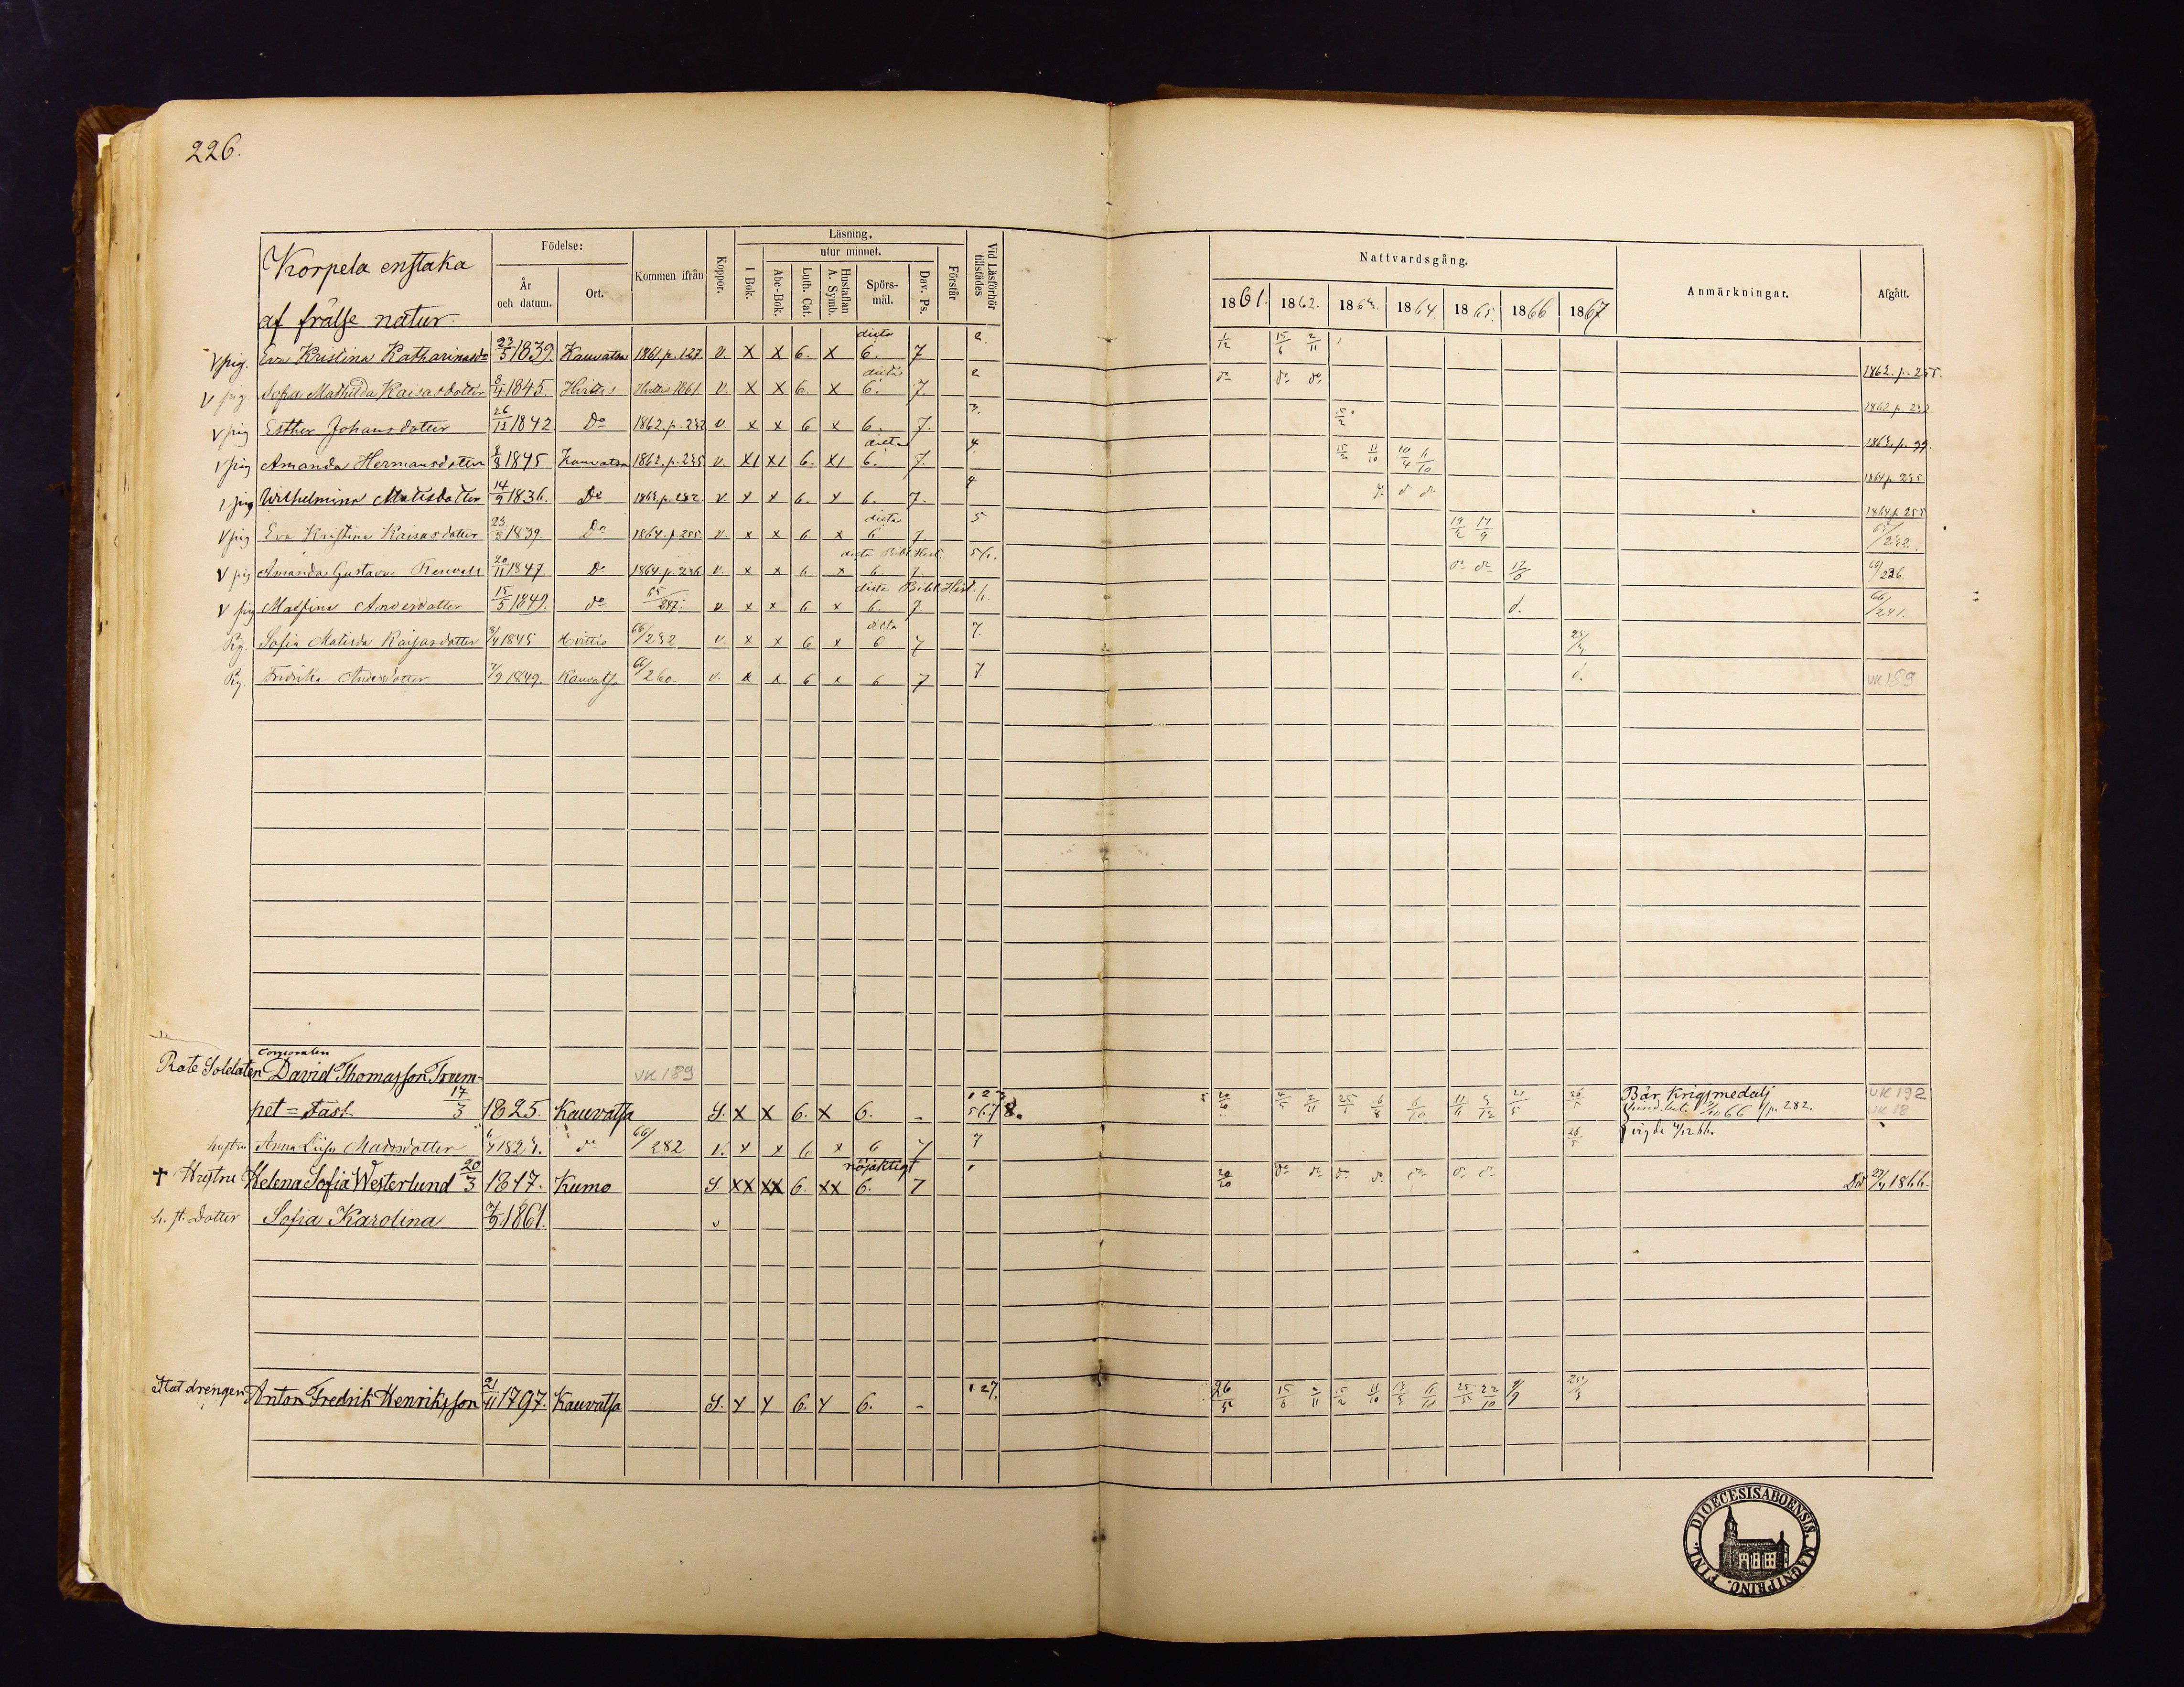 226.
Korpela enstaka
af frälse natur.
Födelse:
År och datum.
Ort.
Kommen ifrån
Koppor.
Läsning,
I Bok.
utur minnet.
Abc-Bok.
Luth. Cat.
Hustaflan A. Symb.
Spörs-mål.
Dav. Ps.
Förstår
Vid Läsförhör tillstädes
Nattvardsgång.
1861. 1862. 1863. 1864. 1865. 1866 1867
Anmärkningar.
Afgått.
V pig. Eva Kristina Katharinasdr 23/5 1839. Kauvatsa 1861 p. 127. v. x x 6. x dicta 6. 7 2. 1/12 15/6 2/11 1862. p. 255.
V pig. Sofia Mathilda Kaisasdotter 8/4 1845. Hvittis Hvittis 1861. v. x x 6. x dicta 6. 7. 2 do do do 1862 p. 232.
V pig Esther Johansdotter 26/12 1842. Do 1862. p. 232 v x x 6 x 6. 7. 3. 15/2 1863. p. 99.
V pig Amanda Hermansdotter 1845 Kauvatsa 1862. p. 235 v. x1 x1 6. x1 dicta 6. 7. 4. 15/2 11/10 10/4 6/10 1864 p. 235
V pig Wilhelmina Matisdotter 14/9 1836. Do 1863. p. 282. v x x 6. x 6. 7. d. d do 1864 p. 255
V pig Eva Kristina Kaisasdotter 23/5 1839 Do 1864. p. 255. v. x x 6 x dicta 6 7 5 19/2 17/9 65/232.
V pig Amanda Gustava Renvall 20/11 1847 Do 1864. p. 236 v. x x 6 x dicta Bibl. Hist. 6. 7 5/6. do do 17/6 66/226.
V pig Matstina Andersdotter 15/5 1849. do 65/247. v x x 6 x dicta Bibl. Hist. 6. 7 6. d. 66/241.
Pig. Sofia Matilda Kaisasdotter 8/4 1845 Hvittis 66/232 v. x x 6 x dicta 6 7 7.
Pig. Fredrika Andersdotter 7/9 1849. Kauvatsa 66/260. v. x x 6 x 6 7 7. d. UK 189
Corporalen
Rote Soldaten David Thomasson Trum- UK 189
pet = Fast 17/3 1825. Kauvatsa S. x x 6. x 6. - 1 2 3 5 6 7 8. 20/10 4/5 2/11 25/1 16/8 6/10 11/6 3/12 21/5 26/5 Bär Krigsmedalj UK 192
66 /p. 282. UK 18
hustru Anna Liisa Madsdotter do 66/282 v. x x 6 x 6 7 7 26/5 vigde 4/12 66.
† Hustru Helena Sofia Westerlund 20/3 1817. Kumo S xx xx 6. xx nöjaktigt 6. 7 20/10 do do do do do do do Död 23/4 1866.
h. st. Dotter Sofia Karolina 7/3 1861. v
Stat drengen Anton Fredrik Henriksson 21/11 1797. Kauvatsa S. x x 6. x 6. - 1 2 7. 26/5 15/6 2/11 15/2 11/10 13/3 6/10 25/5 22/10 9/9
FINL. DIOECESIS ABOENSIS. MAGNI PRINC.